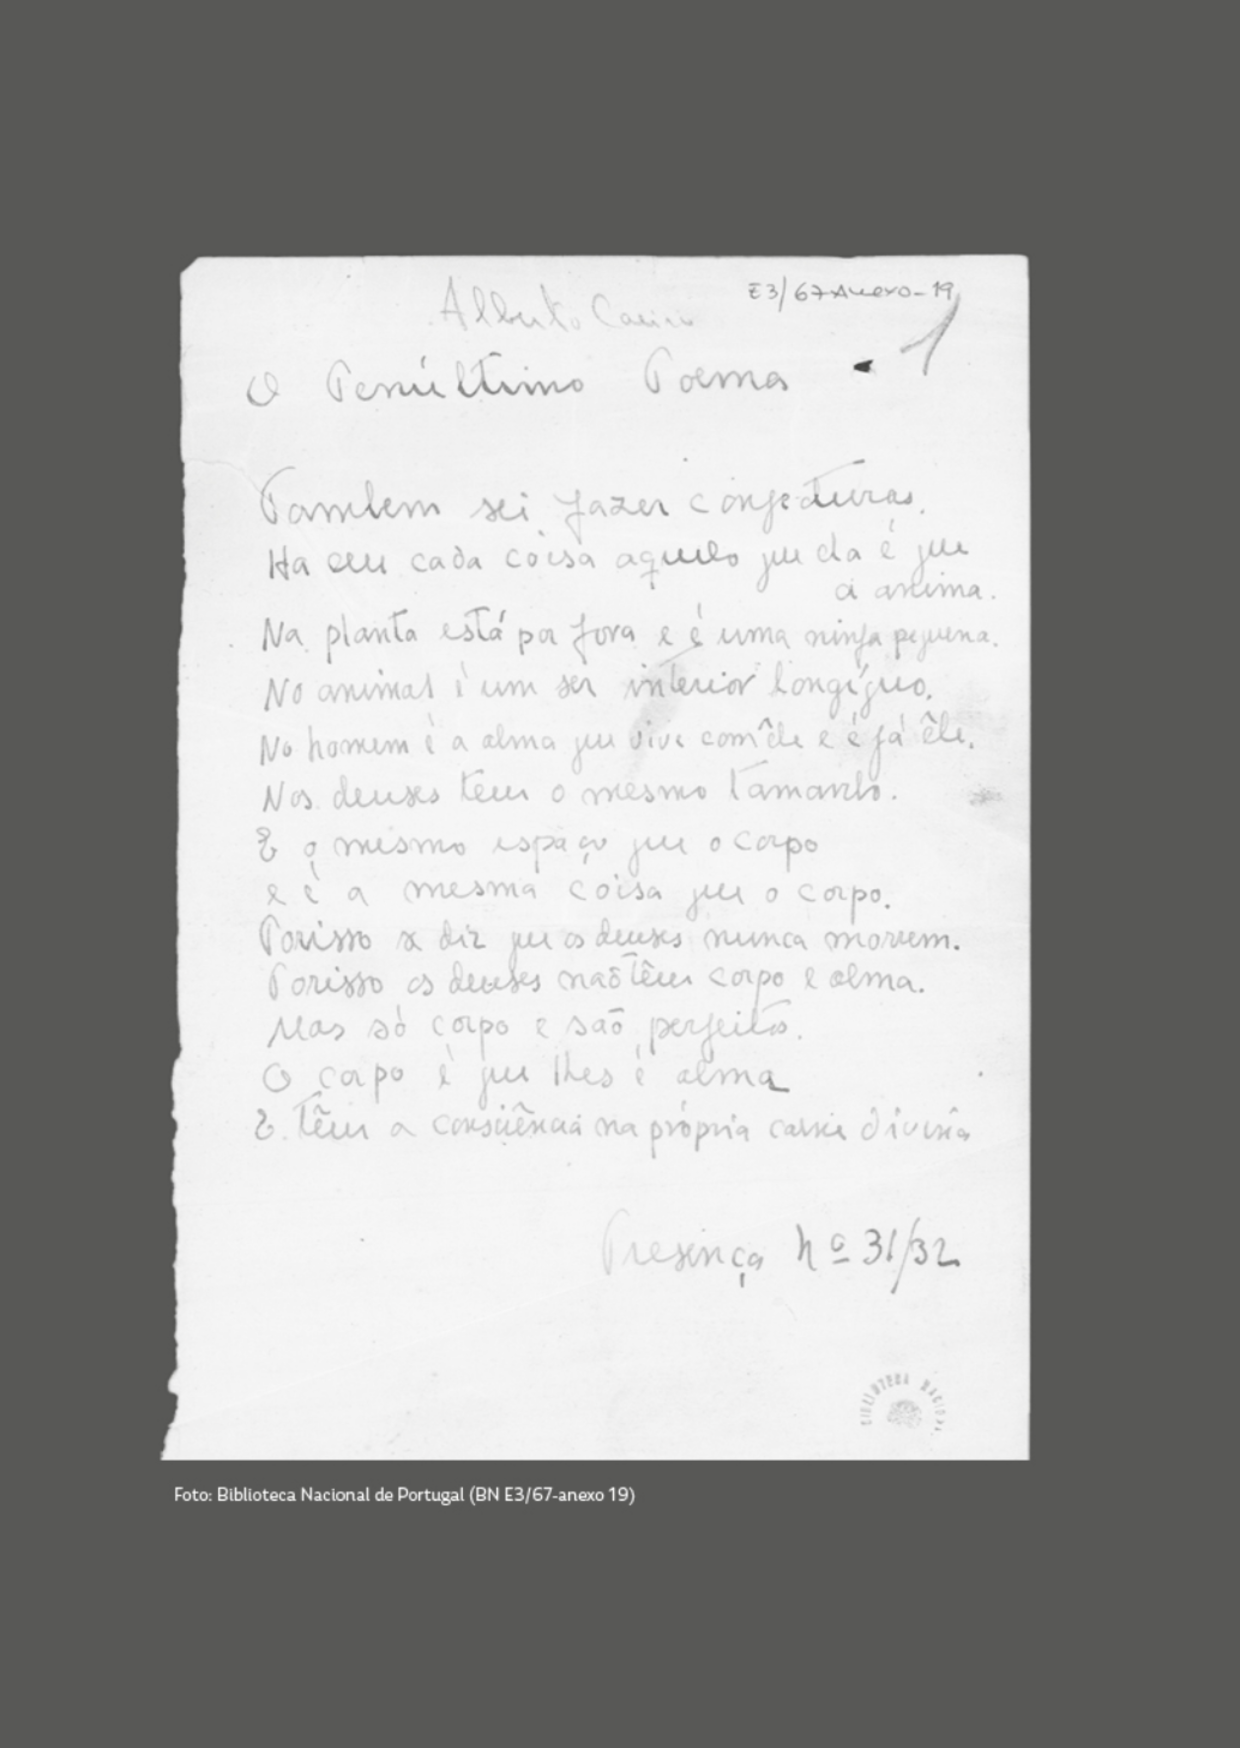 Alberto Caeiro
E3/67-Anexo-19
1
O Penúltimo Poema
Tambem sei fazer conjeturas.
Ha em cada coisa aquilo que ela é que
a anima.
Na planta está por fora e é uma ninfa pequena.
No animal é um ser interior longíquo.
No homem é a alma que vive com êle e é já êle.
Nos deuses tem o mesmo tamanho.
E o mesmo espaço que o corpo
e é a mesma coisa que o corpo.
Porisso se diz que os deuses nunca morrem.
Porisso os deuses não têm corpo e alma.
Mas só corpo e são perfeitos.
O corpo é que lhes é alma
E têm a consciência na própria carne divina
Presença nº 31/32
BIBLIOTECA NACIONAL
Foto: Biblioteca Nacional de Portugal (BN E3/67-anexo 19)